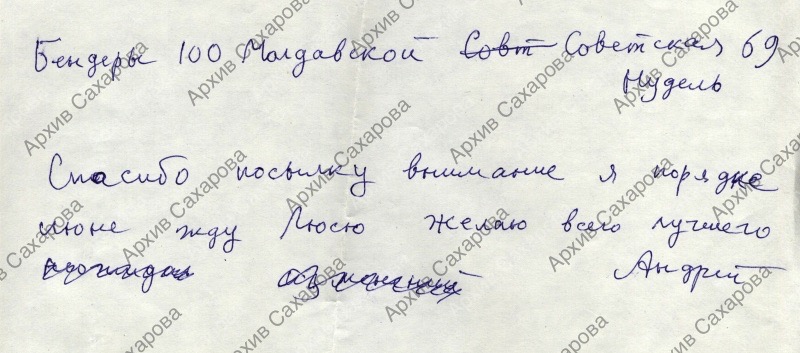 Бендеры 100 Молдавской Совт Советская 69
Нудель
Спасибо посылку внимание я порядке
июне жду Люсю желаю всего лучшего
Андрей
Архив Сахарова